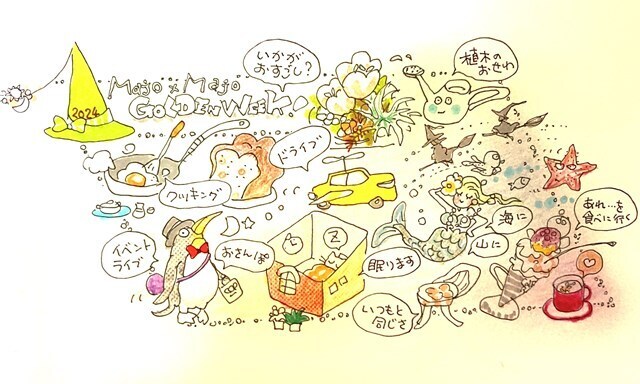 いかが
おすごし?
植木の
おせわ
2024
Majo x Majo
GOLDEN WEEK!
ドライブ
クッキング
あれ…を
食べに行く
海に
山に
イベント
ライブ
おさんぽ
Z
眠ります
いつもと
同じさ